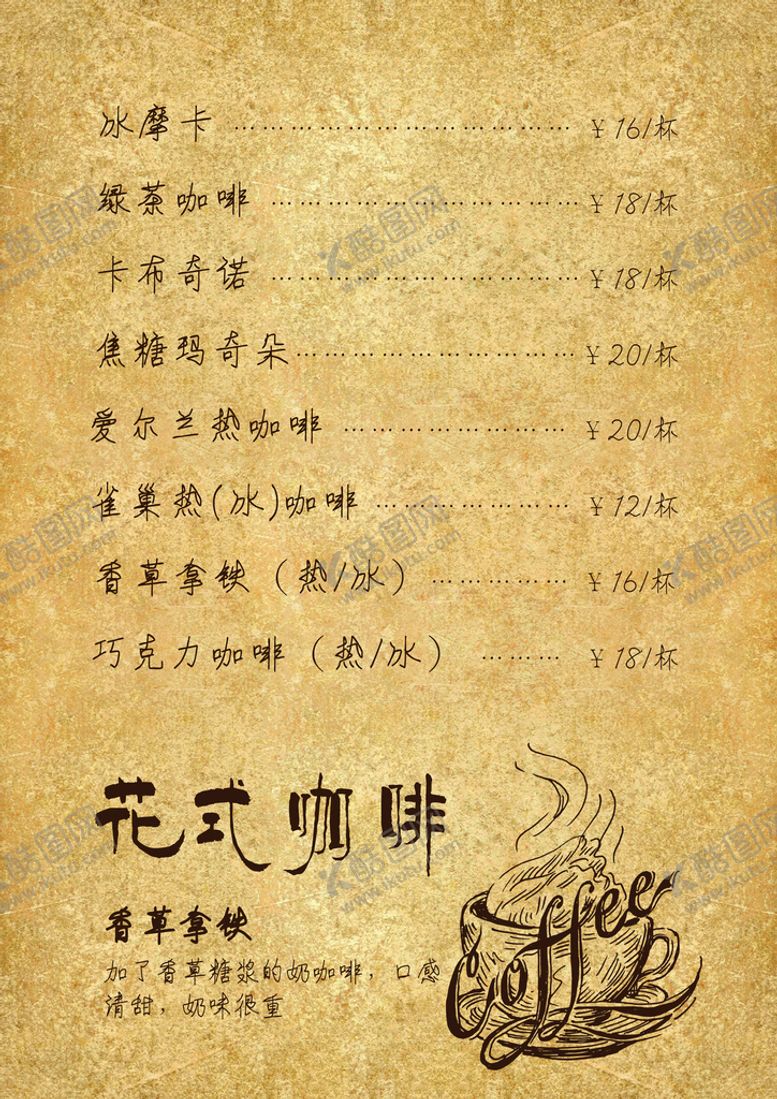 冰摩卡 ……………………………… ￥16/杯
绿茶咖啡 ……………………………… ￥18/杯
卡布奇诺 ……………………………… ￥18/杯
焦糖玛奇朵………………………… ￥20/杯
爱尔兰热咖啡 …………………… ￥20/杯
雀巢热(冰)咖啡 ………………… ￥12/杯
香草拿铁（热/冰） …………… ￥16/杯
巧克力咖啡（热/冰） ……… ￥18/杯
花式咖啡
香草拿铁
加了香草糖浆的奶咖啡，口感
清甜，奶味很重
Coffee
酷图网
www.ikutu.com